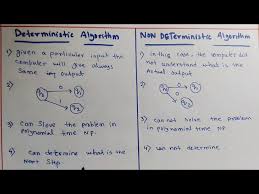 Deterministic Algorithm
1) given a particular input the
Computer will give always
Same output
2)
0
3) Can Slove the problem in
Polynomial time NP.
4) can determine what is the
Next Step
NON DETerministic Algorithm
1) in this case, the computer did
not understand what is the
Actual output
2)
0
0
3) can not Solve the problem
in Polynomial time NP.
4) can not determine